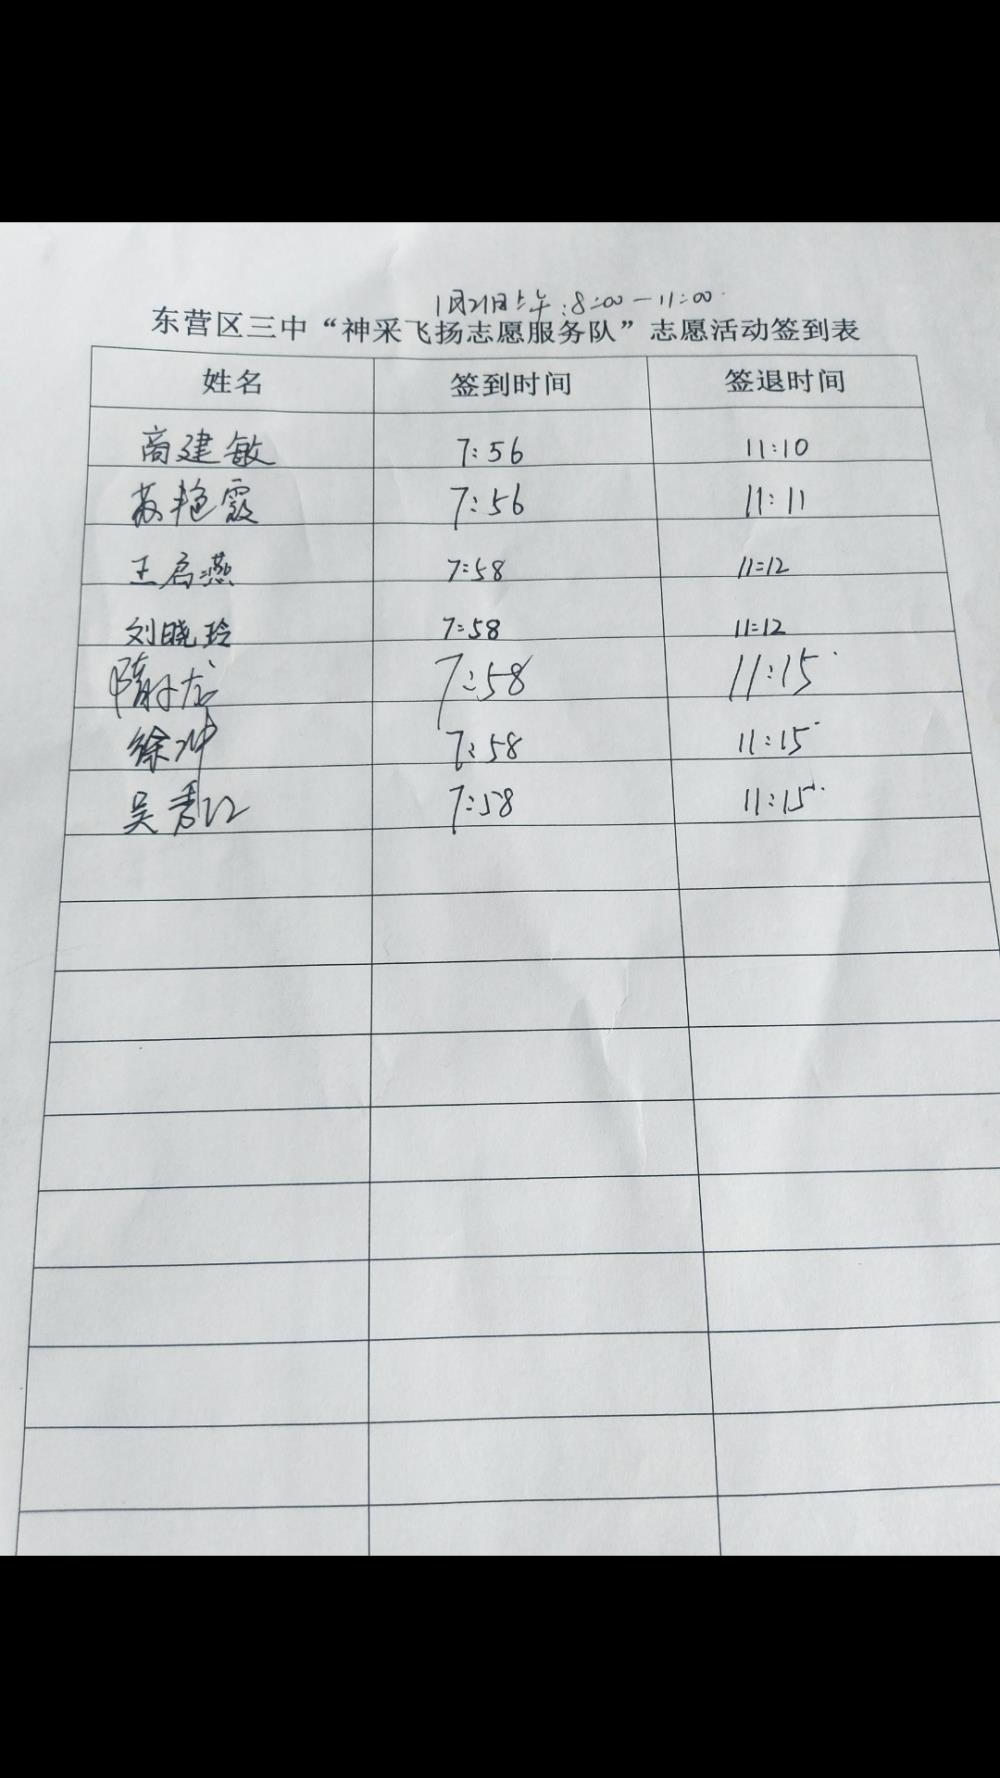 1月21日上午:8:00—11:00
东营区三中“神采飞扬志愿服务队”志愿活动签到表
姓名 签到时间 签退时间
商建敏 7:56 11:10
苏艳霞 7:56 11:11
王启燕 7:58 11:12
刘晓玲 7:58 11:12
隋 7:58 11:15
徐冲 7:58 11:15
吴秀江 7:58 11:15